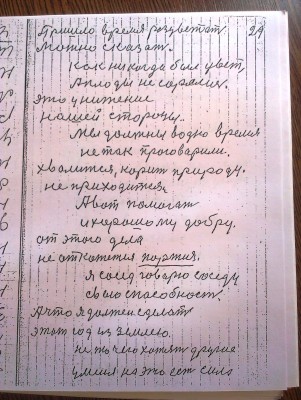 Пришло время розцветат 29
Мотно сказат.
Как никогда был цвет,
А плоды не
это унижение
нашей стороны.
Мы должны водно время
не так проговорили.
хвалится, корит природу.
не приходится.
А вот помогат
ихорошому добру.
от этого дела
не откажется партия.
Я сосед говорю соседу
свою способност.
А что я должен сделат
этот год из землею.
не то чего хотят другие
умения на это ест сила